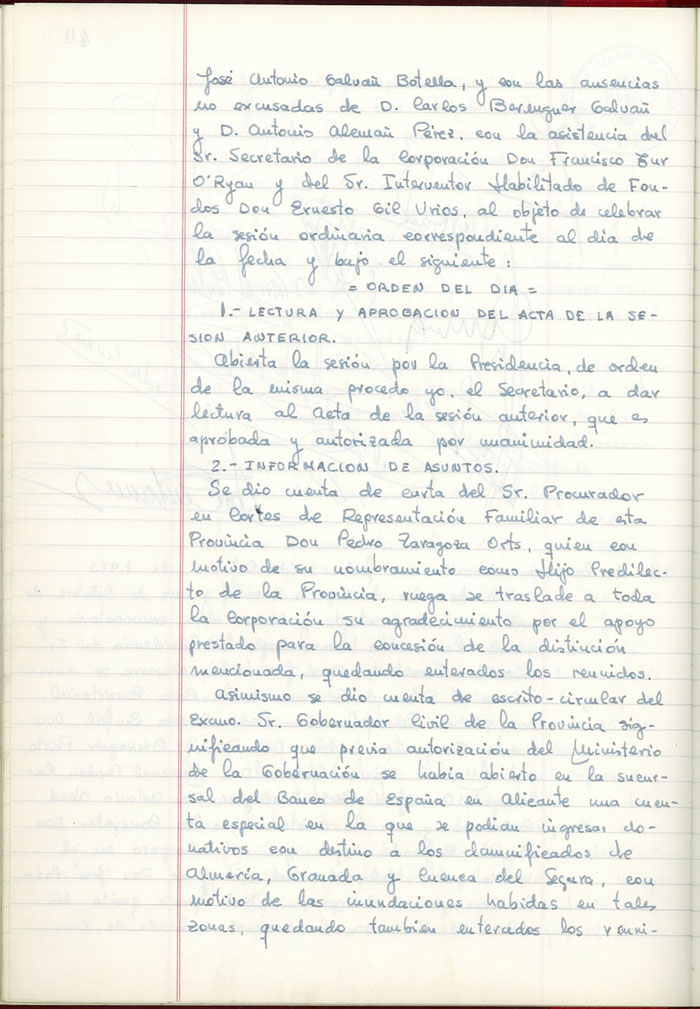 José Antonio Galvañ Botella, y con las ausencias
no excusadas de D. Carlos Berenguer Galvañ
y D. Antonio Alemañ Pérez, con la asistencia del
Sr. Secretario de la Corporación Don Francisco Zur
O'Ryan y del Sr. Interventor Habilitado de Fon-
dos Don Ernesto Gil Urios, al objeto de celebrar
la sesión ordinaria correspondiente al día de
la fecha y bajo el siguiente:
= ORDEN DEL DIA =
1.- LECTURA Y APROBACION DEL ACTA DE LA SE-
SION ANTERIOR.
Abierta la sesión por la Presidencia, de orden
de la misma procedo yo, el Secretario, a dar
lectura al Acta de la sesión anterior, que es
aprobada y autorizada por unanimidad.
2.- INFORMACION DE ASUNTOS.
Se dio cuenta de carta del Sr. Procurador
en Cortes de Representación Familiar de esta
Provincia Don Pedro Zaragoza Orts, quien con
motivo de su nombramiento como Hijo Predilec-
to de la Provincia, ruega se traslade a toda
la Corporación su agradecimiento por el apoyo
prestado para la concesión de la distinción
mencionada, quedando enterados los reunidos.
Asimismo se dio cuenta de escrito-circular del
Excmo. Sr. Gobernador Civil de la Provincia sig-
nificando que previa autorización del Ministerio
de la Gobernación se había abierto en la sucur-
sal del Banco de España en Alicante una cuen-
ta especial en la que se podian ingresar do-
nativos con destino a los damnificados de
Almería, Granada y Cuenca del Segura, con
motivo de las inundaciones habidas en tales
zonas, quedando tambien enterados los reuni-